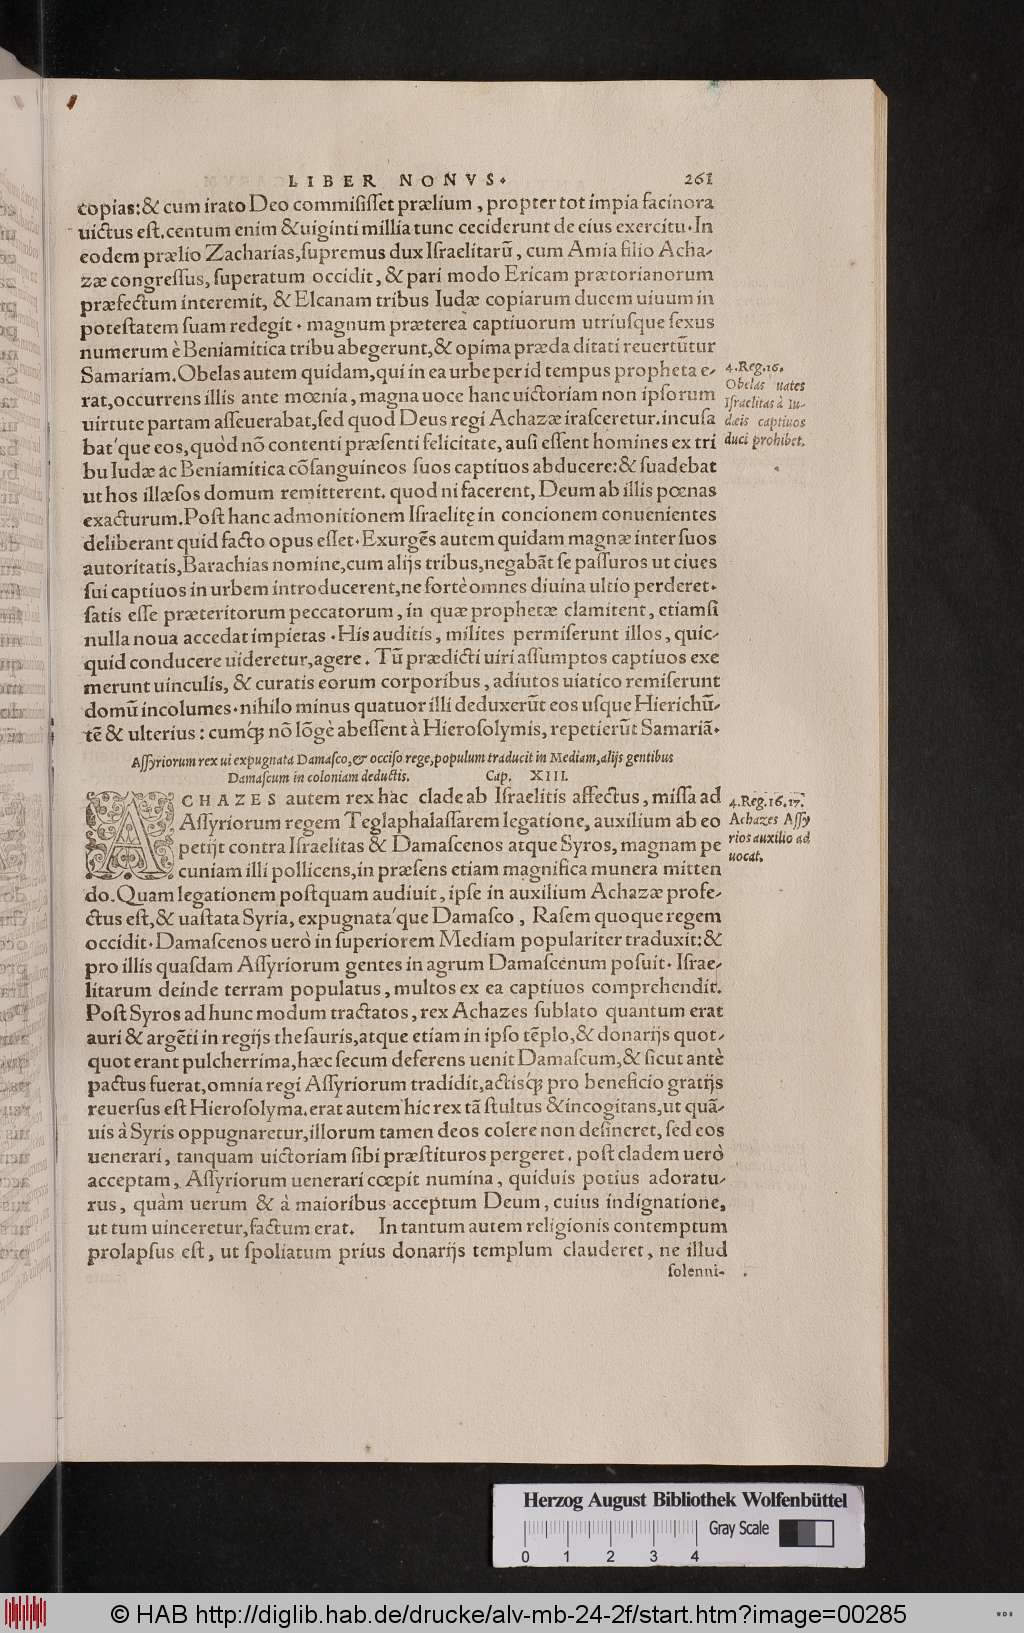 LIBER NONVS. 261
copias:& cum irato Deo commisisset prælium, propter tot impia facinora
uictus est. centum enim & uiginti millia tunc ceciderunt de eius exercitu. In
eodem prælio Zacharias, supremus dux Israelitarũ, cum Amia filio Acha-
zæ congressus, superatum occidit, & pari modo Ericam prætorianorum
præfectum interemit, & Elcanam tribus Iudæ copiarum ducem uiuum in
potestatem suam redegit. magnum præterea captiuorum utriusque sexus
numerum è Beniamitica tribu abegerunt,& opima præda ditati reuertũtur
Samariam. Obelas autem quidam, qui in ea urbe per id tempus propheta e-
rat, occurrens illis ante mœnia, magna uoce hanc uictoriam non ipsorum
uirtute partam asseuerabat, sed quod Deus regi Achazæ irasceretur. incusa
bat´que eos, quòd nõ contenti præsenti felicitate, ausi essent homines ex tri
bu Iudæ ac Beniamitica cõsanguineos suos captiuos abducere:& suadebat
ut hos illæsos domum remitterent. quod ni facerent, Deum ab illis pœnas
exacturum. Post hanc admonitionem Israelitę in concionem conuenientes
deliberant quid facto opus esset. Exurgẽs autem quidam magnæ inter suos
autoritatis, Barachias nomine, cum alijs tribus, negabãt se passuros ut ciues
sui captiuos in urbem introducerent, ne fortè omnes diuina ultio perderet.
satis esse præteritorum peccatorum, in quæ prophetæ clamitent, etiamsi
nulla noua accedat impietas. His auditis, milites permiserunt illos, quic-
quid conducere uideretur, agere. Tũ prædicti uiri assumptos captiuos exe
merunt uinculis, & curatis eorum corporibus, adiutos uiatico remiserunt
domũ incolumes. nihilo minus quatuor illi deduxerũt eos usque Hierichũ-
tẽ & ulterius: cumq́; nõ lõgè abessent à Hierosolymis, repetierũt Samariã.
4. Reg. 16.
Obelas uates
Israelitas à Iu-
dæis captiuos
duci prohibet.
Assyriorum rex ui expugnata Damasco, & occiso rege, populum traducit in Mediam, alijs gentibus
Damascum in coloniam deductis. Cap. XIII.
ACHAZES autem rex hac clade ab Israelitis affectus, missa ad
Assyriorum regem Teglaphalassarem legatione, auxilium ab eo
petijt contra Israelitas & Damascenos atque Syros, magnam pe
cuniam illi pollicens, in præsens etiam magnifica munera mitten
do. Quam legationem postquam audiuit, ipse in auxilium Achazæ profe-
ctus est, & uastata Syria, expugnata´que Damasco, Rasem quoque regem
occidit. Damascenos uerò in superiorem Mediam populariter traduxit:&
pro illis quasdam Assyriorum gentes in agrum Damascenum posuit. Israe-
litarum deinde terram populatus, multos ex ea captiuos comprehendit.
Post Syros ad hunc modum tractatos, rex Achazes sublato quantum erat
auri & argẽti in regijs thesauris, atque etiam in ipso tẽplo, & donarijs quot-
quot erant pulcherrima, hæc secum deferens uenit Damascum, & sicut antè
pactus fuerat, omnia regi Assyriorum tradidit, actisq́; pro beneficio gratijs
reuersus est Hierosolyma. erat autem hic rex tã stultus & incogitans, ut quã-
uis à Syris oppugnaretur, illorum tamen deos colere non desineret, sed eos
uenerari, tanquam uictoriam sibi præstituros pergeret. post cladem uerò
acceptam, Assyriorum uenerari cœpit numina, quiduis potius adoratu-
rus, quàm uerum & à maioribus acceptum Deum, cuius indignatione,
ut tum uinceretur, factum erat. In tantum autem religionis contemptum
prolapsus est, ut spoliatum prius donarijs templum clauderet, ne illud
solenni-
4. Reg. 16. 17.
Achazes Assy
rios auxilio ad
uocat.
Herzog August Bibliothek Wolfenbüttel
Gray Scale
0 1 2 3 4
© HAB http://diglib.hab.de/drucke/alv-mb-24-2f/start.htm?image=00285